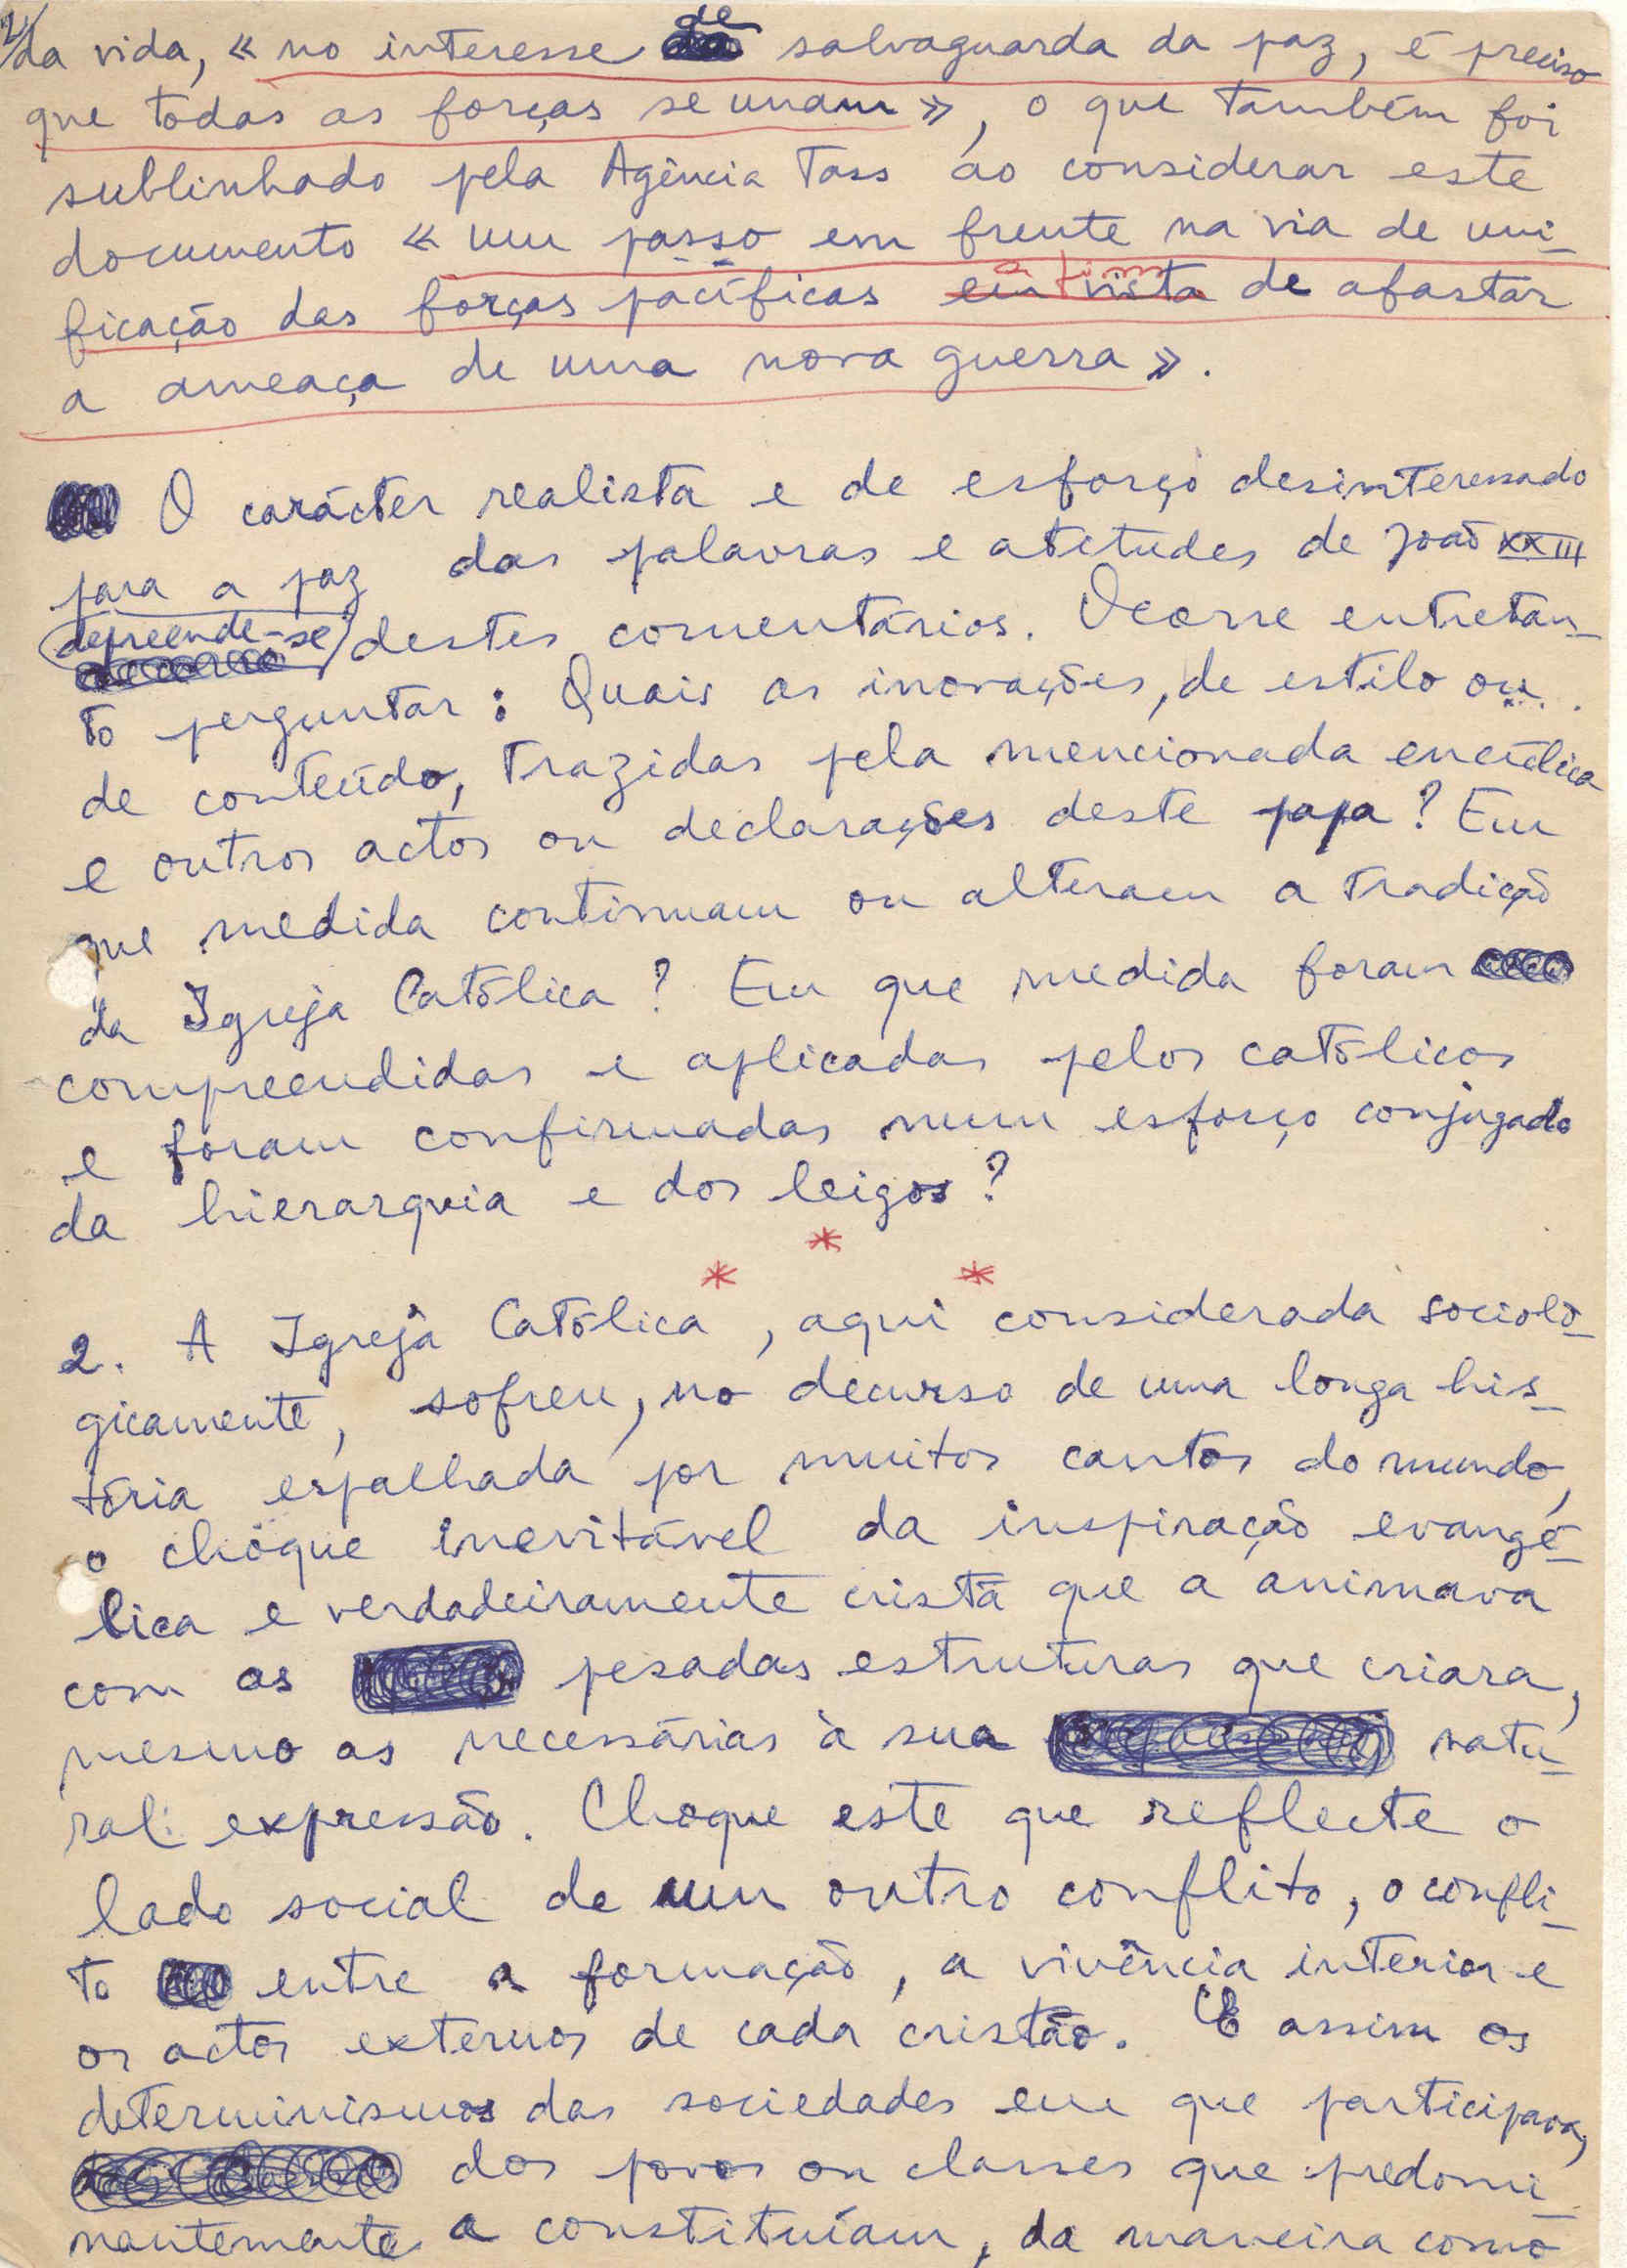 2/
da vida, « no interesse de salvaguarda da paz, é preciso
que todas as forças se unam », o que também foi
sublinhado pela Agência Tass ao considerar este
documento « um passo em frente na via de uni-
ficação das forças pacíficas em vista a fim de afastar
a ameaça de uma nova guerra ».
O carácter realista e de esforço desinteressado
para a paz das palavras e atitudes de João XXIII
depreende-se destes comentários. Ocorre entretan-
to perguntar: Quais as inovações, de estilo ou
de conteúdo, trazidas pela mencionada encíclica
e outros actos ou declarações deste papa? Em
que medida continuam ou alteram a tradição
da Igreja Católica? Em que medida foram
compreendidas e aplicadas pelos católicos
e foram confirmadas num esforço conjugado
da hierarquia e dos leigos?
*
* *
2. A Igreja Católica, aqui considerada socioló-
gicamente, sofreu, no decurso de uma longa his-
tória espalhada por muitos cantos do mundo,
o choque inevitável da inspiração evangé-
lica e verdadeiramente cristã que a animava
com as pesadas estruturas que criara,
mesmo as necessárias à sua natu-
ral expressão. Choque este que reflecte o
lado social de um outro conflito, o confli-
to entre a formação, a vivência interior e
os actos externos de cada cristão. E assim os
determinismos das sociedades em que participava,
dos povos ou classes que predomi-
nantemente a constituíam, da maneira como